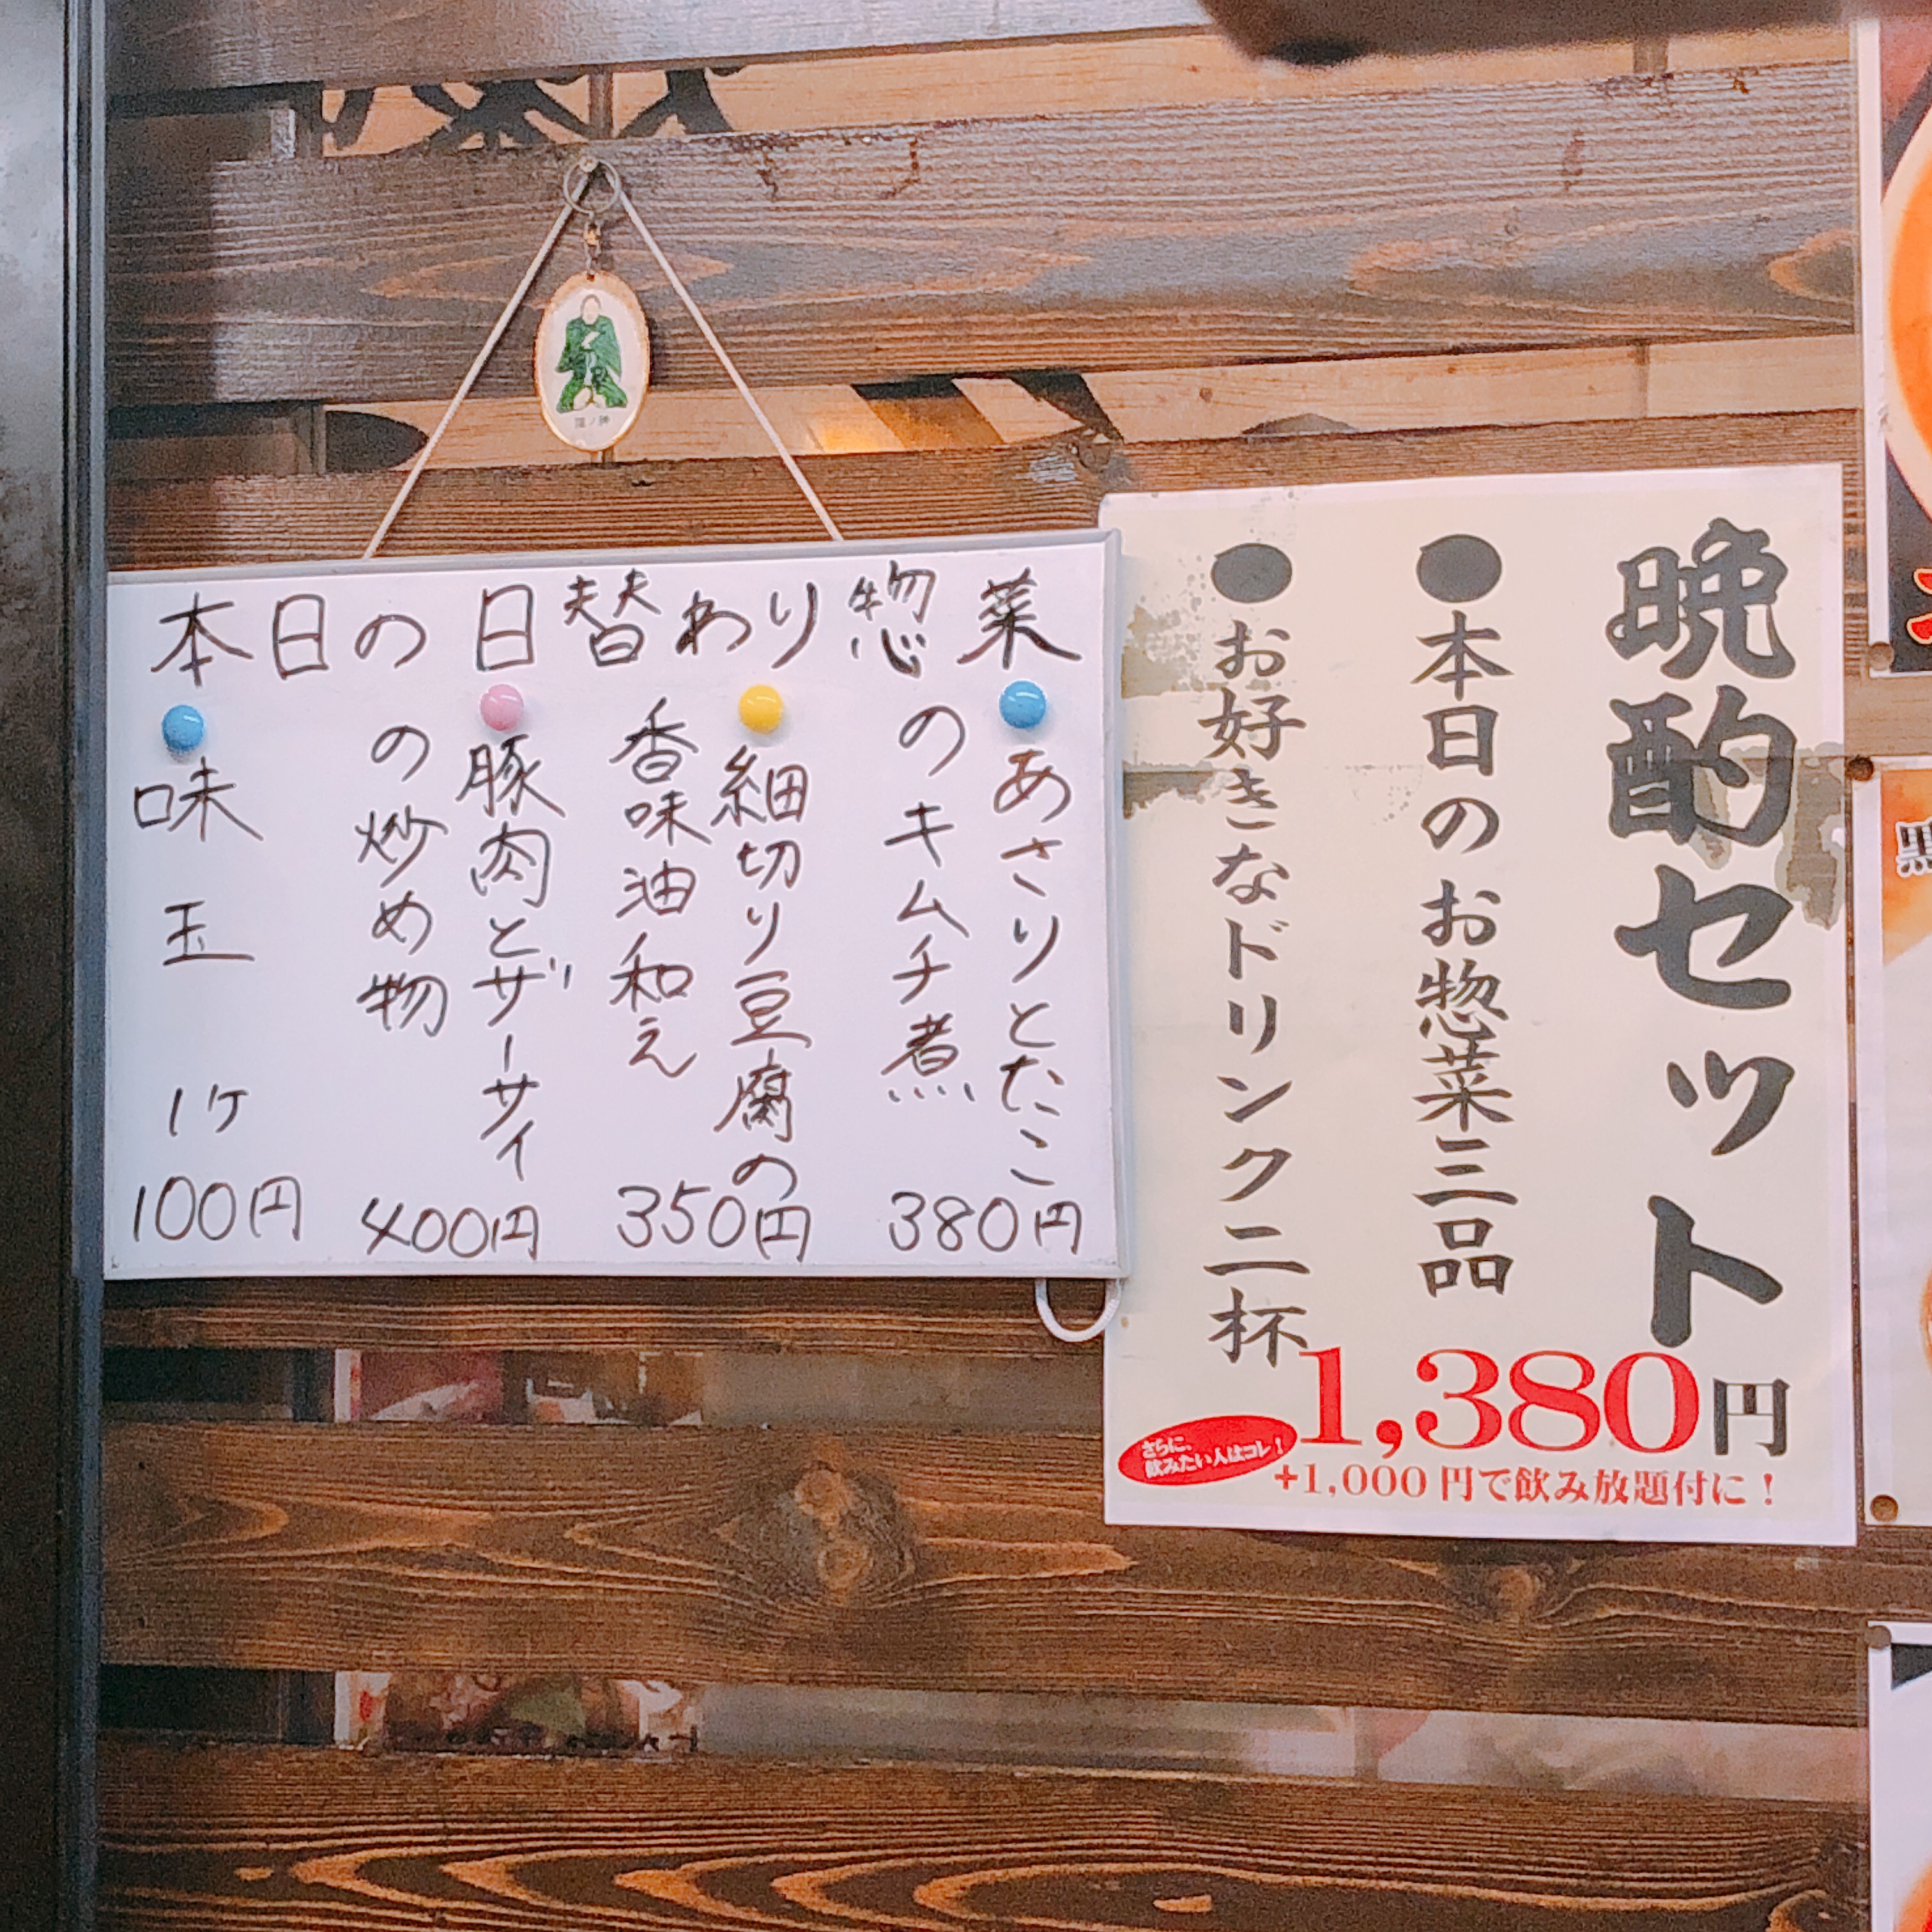 本日の日替わり惣菜
あさりとたこ
のキムチ煮
380円
細切り豆腐の
香味油和え
350円
豚肉とザーサイ
の炒め物
400円
味玉 1ケ
100円
晩酌セット
●本日のお惣菜三品
●お好きなドリンク二杯
1,380円
さらに、
飲みたい人はコレ！
+1,000円で飲み放題付に！
黒